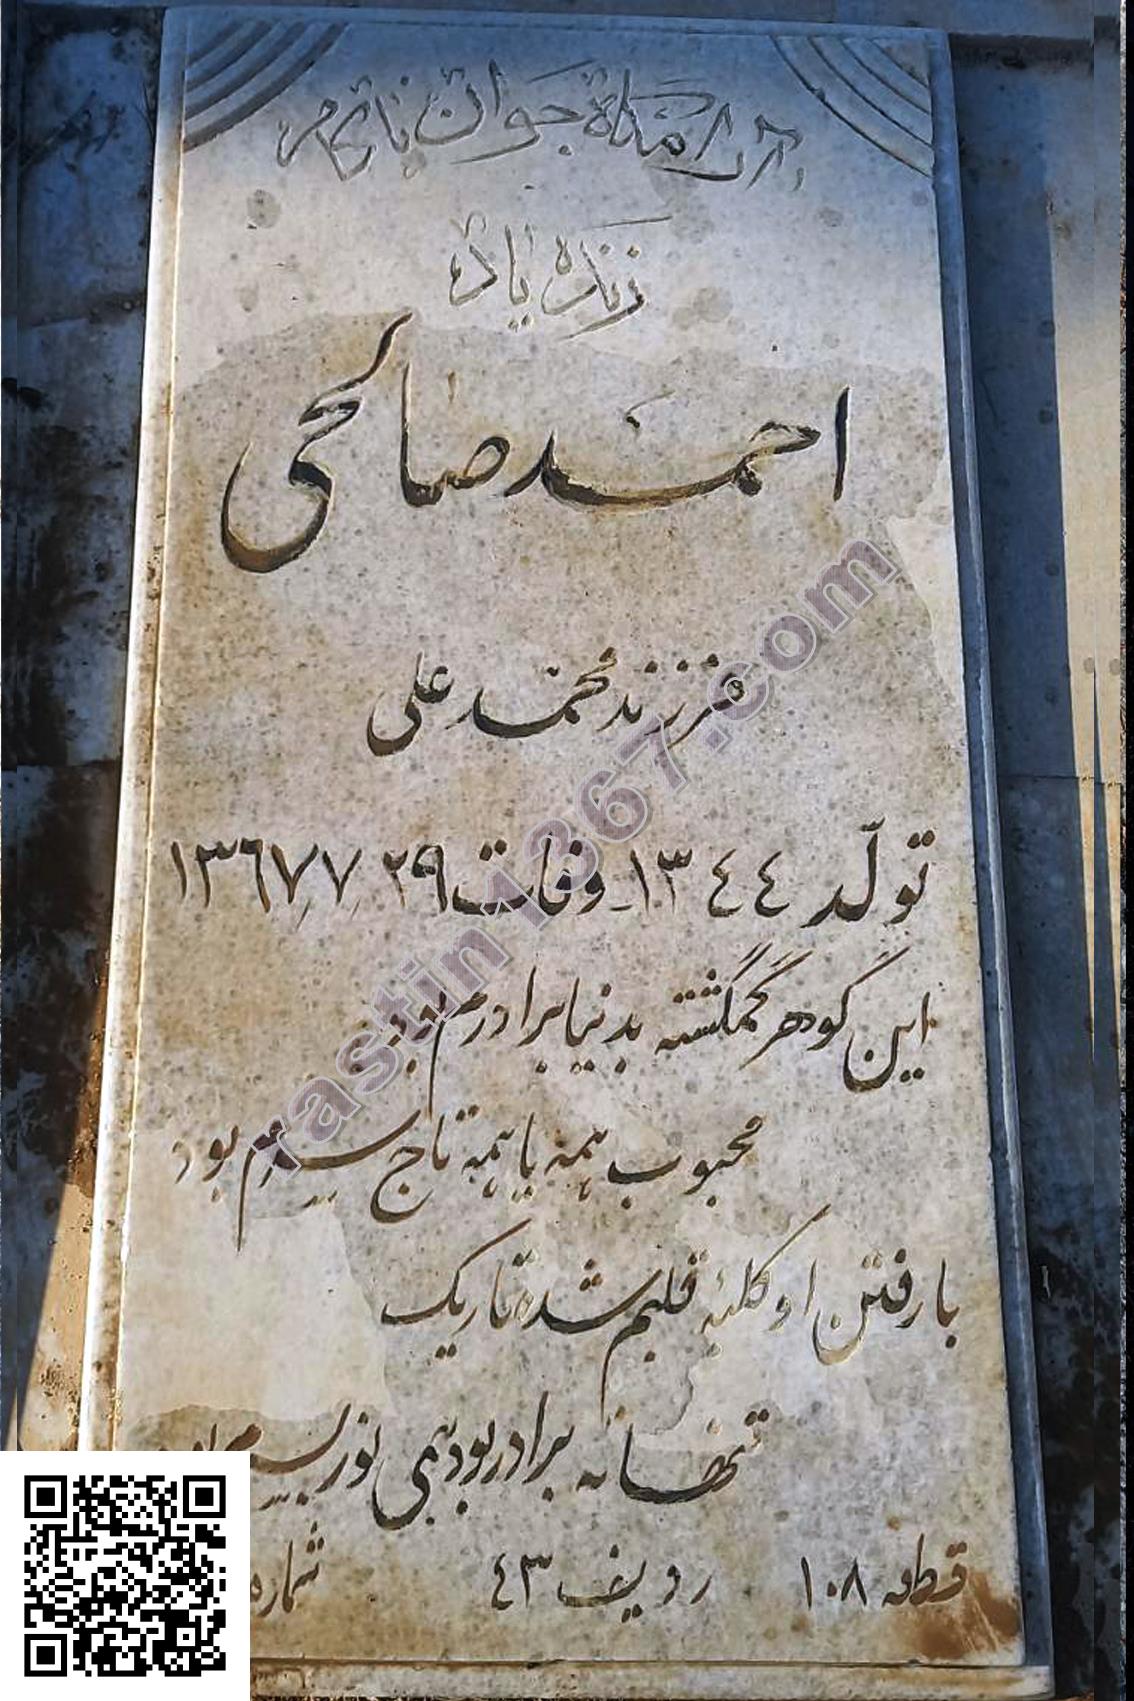 آرامگاه جوان ناکام
زنده یاد
احمد صالحی
فرزند محمد علی
تولد ١٣٤٤ - وفات ٢٩ / ٧ / ١٣٦٧
این گوهر گمگشته بدنیا برادرم بود
محبوب همه یا همه تاج سرم بود
با رفتن او کلبۀ قلبم شده تاریک
تنها نه برادر بود همی نور
قطعه ١٠٨ ردیف ٤٣ شماره
rastin1367.com